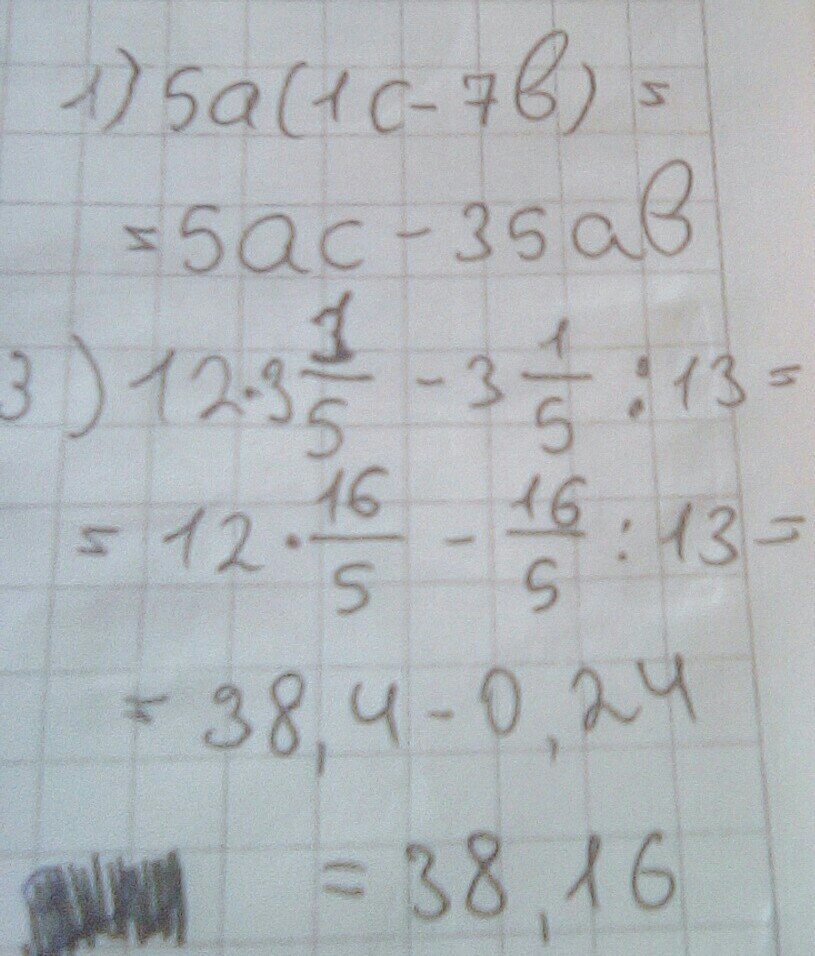 1) 5a(1c-7b) =
= 5ac - 35ab
3) 12·3 1/5 - 3 1/5 : 13 =
= 12 · 16/5 - 16/5 : 13 =
= 38,4 - 0,24
= 38,16